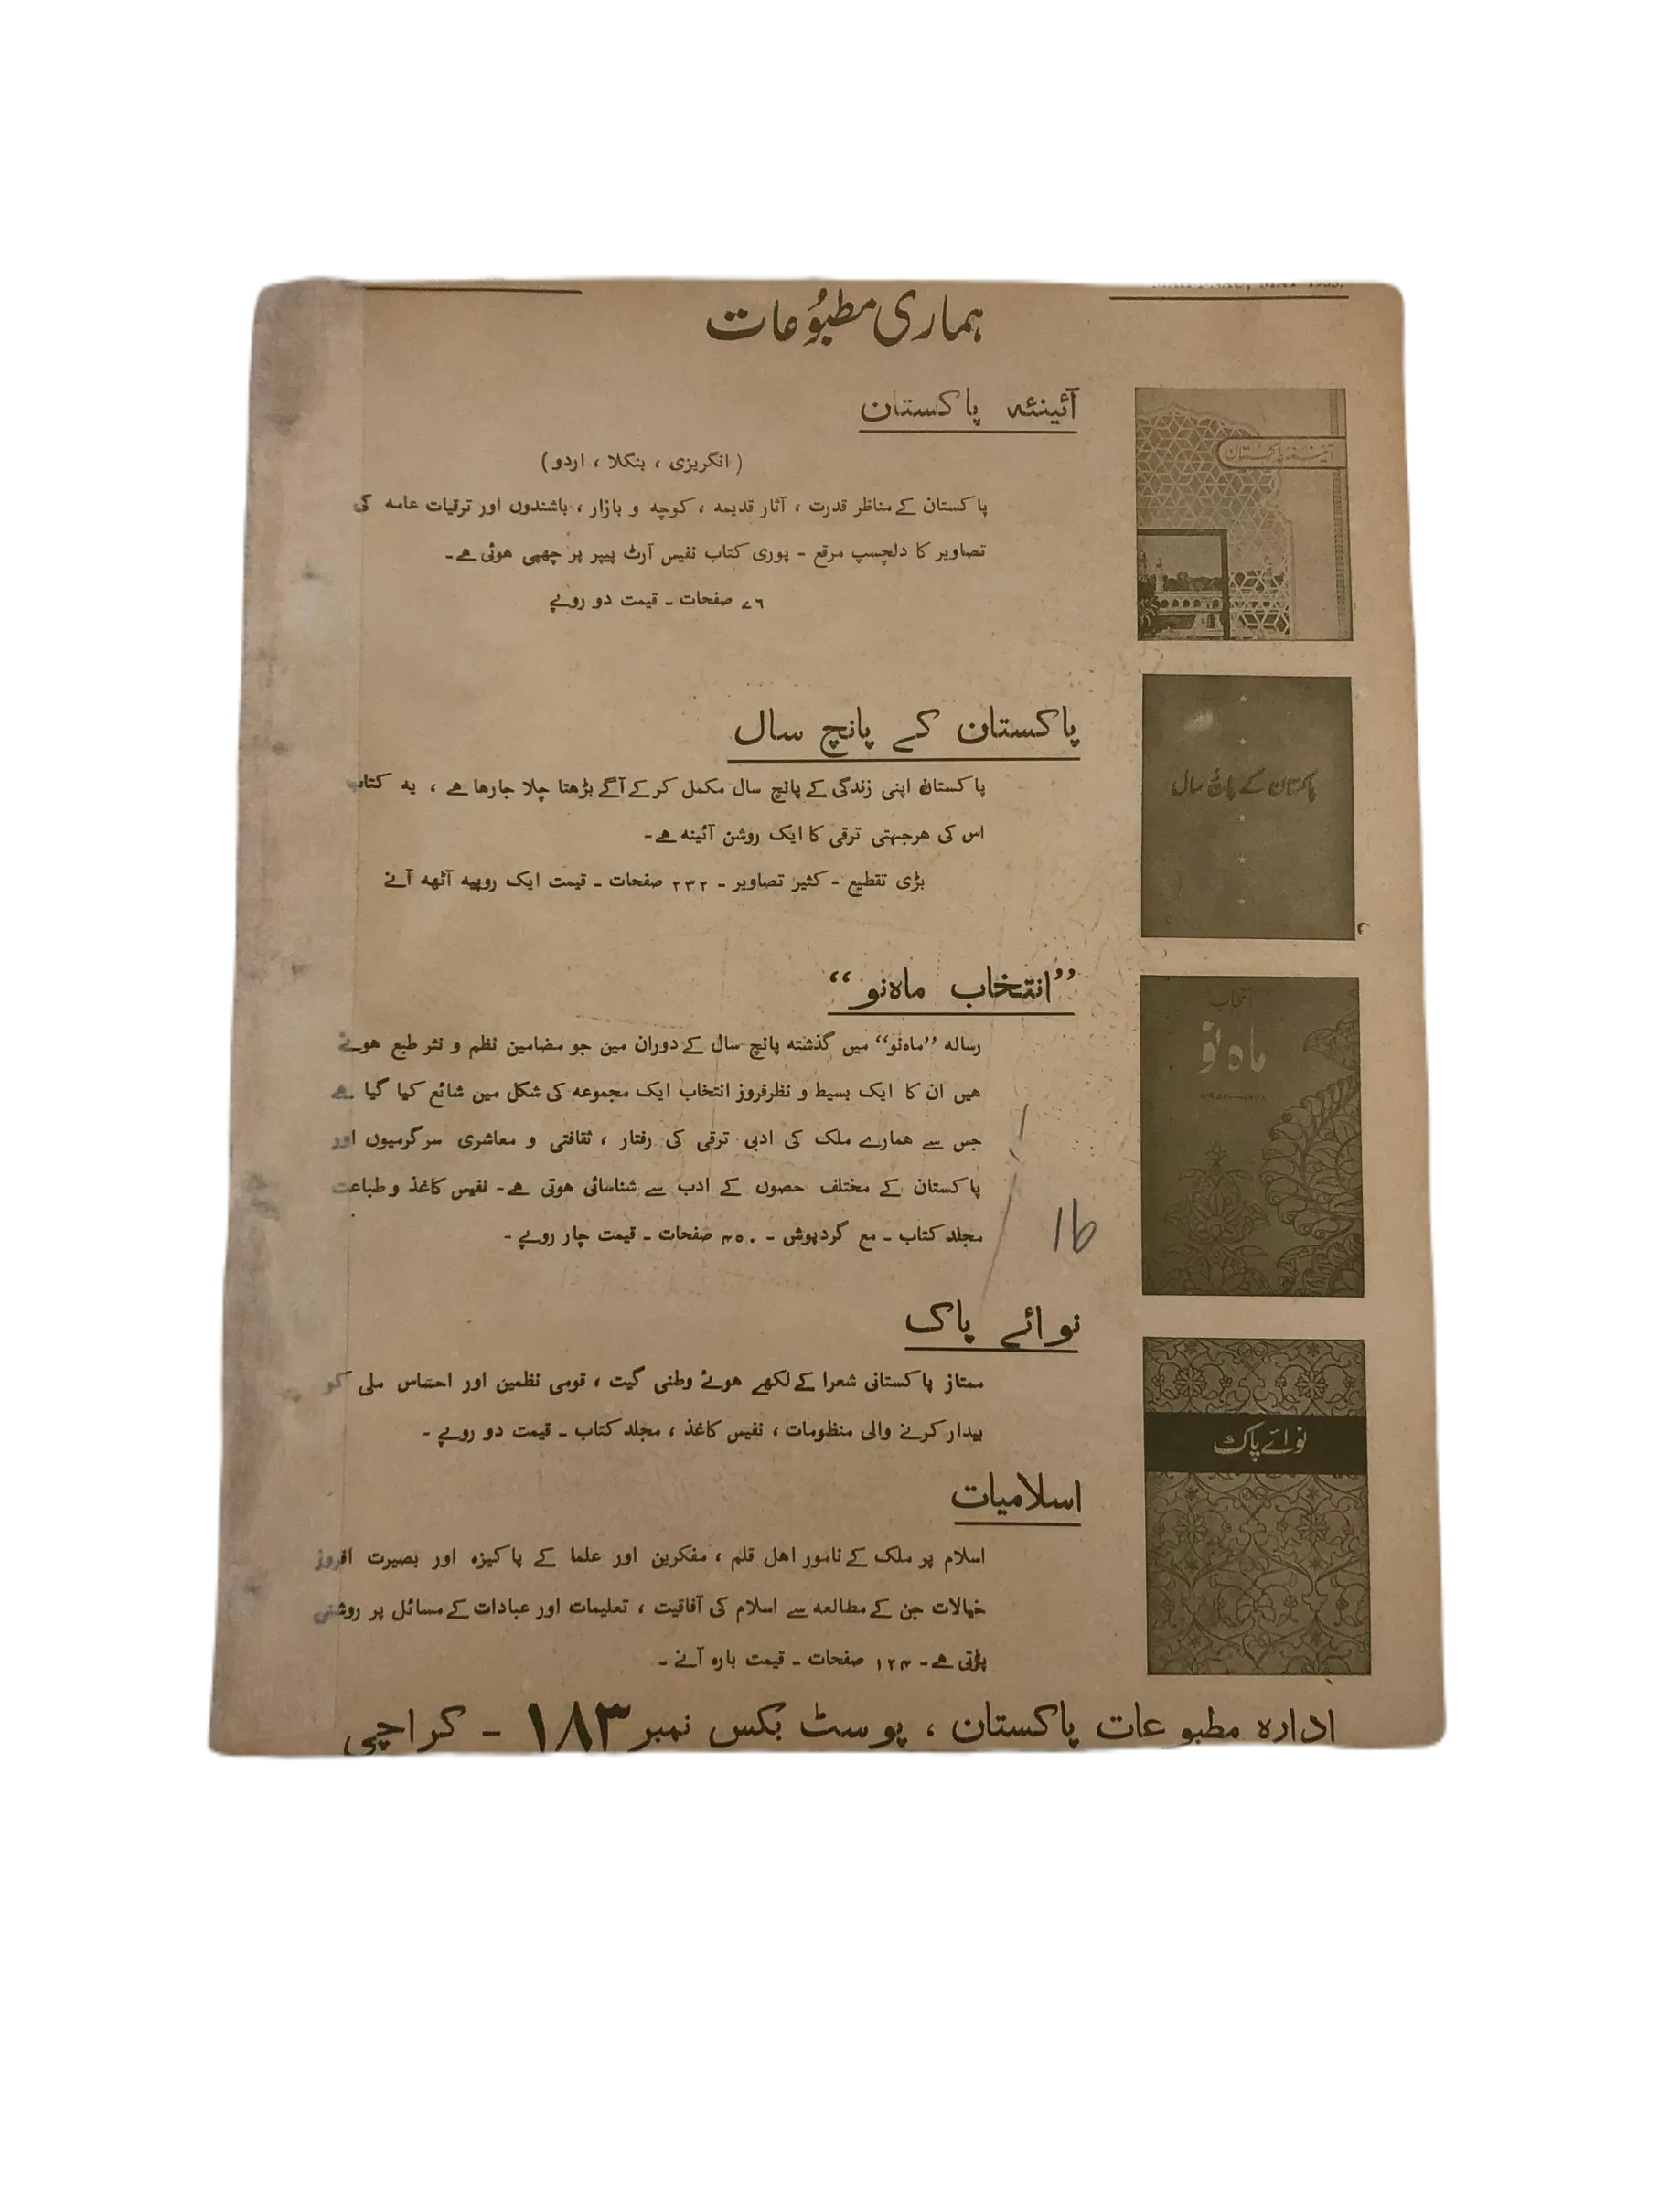 ہماری مطبُوعات
آئینۂ پاکستان
آئینۂ پاکستان
( انگریزی ، بنگلا ، اردو )
پاکستان کے مناظر قدرت ، آثار قدیمہ ، کوچہ و بازار ، باشندوں اور ترقیات عامہ کی
تصاویر کا دلچسپ مرقع - پوری کتاب نفیس آرٹ پیپر پر چھپی ہوئی ہے -
۷٦ صفحات - قیمت دو روپے
پاکستان کے پانچ سال
پاکستان کے پانچ سال
پاکستان اپنی زندگی کے پانچ سال مکمل کر کے آگے بڑھتا چلا جارہا ہے ، یہ کتاب
اس کی ہرجہتی ترقی کا ایک روشن آئینہ ہے -
بڑی تقطیع - کثیر تصاویر - ۲۳۲ صفحات - قیمت ایک روپیہ آٹھہ آنے
”انتخاب ماہ‌نو“
انتخاب
ماہ نو
رسالہ ”ماہ‌نو“ میں گذشتہ پانچ سال کے دوران مین جو مضامین نظم و نثر طبع ہوئے
ہیں ان کا ایک بسیط و نظرفروز انتخاب ایک مجموعہ کی شکل مین شائع کیا گیا ہے
جس سے ہمارے ملک کی ادبی ترقی کی رفتار ، ثقافتی و معاشری سرگرمیوں اور
پاکستان کے مختلف حصوں کے ادب سے شناسائی ہوتی ہے - نفیس کاغذ و طباعت
مجلد کتاب - مع گردپوش - ۴۵۰ صفحات - قیمت چار روپے -
16
نوائے پاک
نوائے پاک
ممتاز پاکستانی شعرا کے لکھے ہوئے وطنی گیت ، قومی نظمین اور احساس ملی کو
بیدار کرنے والی منظومات ، نفیس کاغذ ، مجلد کتاب - قیمت دو روپے -
اسلامیات
اسلام پر ملک کے نامور اہل قلم ، مفکرین اور علما کے پاکیزہ اور بصیرت افروز
خیالات جن کے مطالعہ سے اسلام کی آفاقیت ، تعلیمات اور عبادات کے مسائل پر روشنی
پڑتی ہے - ۱۲۴ صفحات - قیمت بارہ آنے -
ادارہ مطبوعات پاکستان ، پوسٹ بکس نمبر ۱۸۳ - کراچی